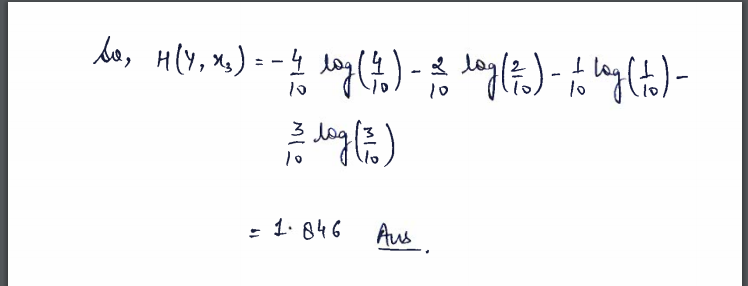 So, H(Y, x₃) = - 4/10 log(4/10) - 2/10 log(2/10) - 1/10 log(1/10) -
3/10 log(3/10)
= 1.846 Ans.